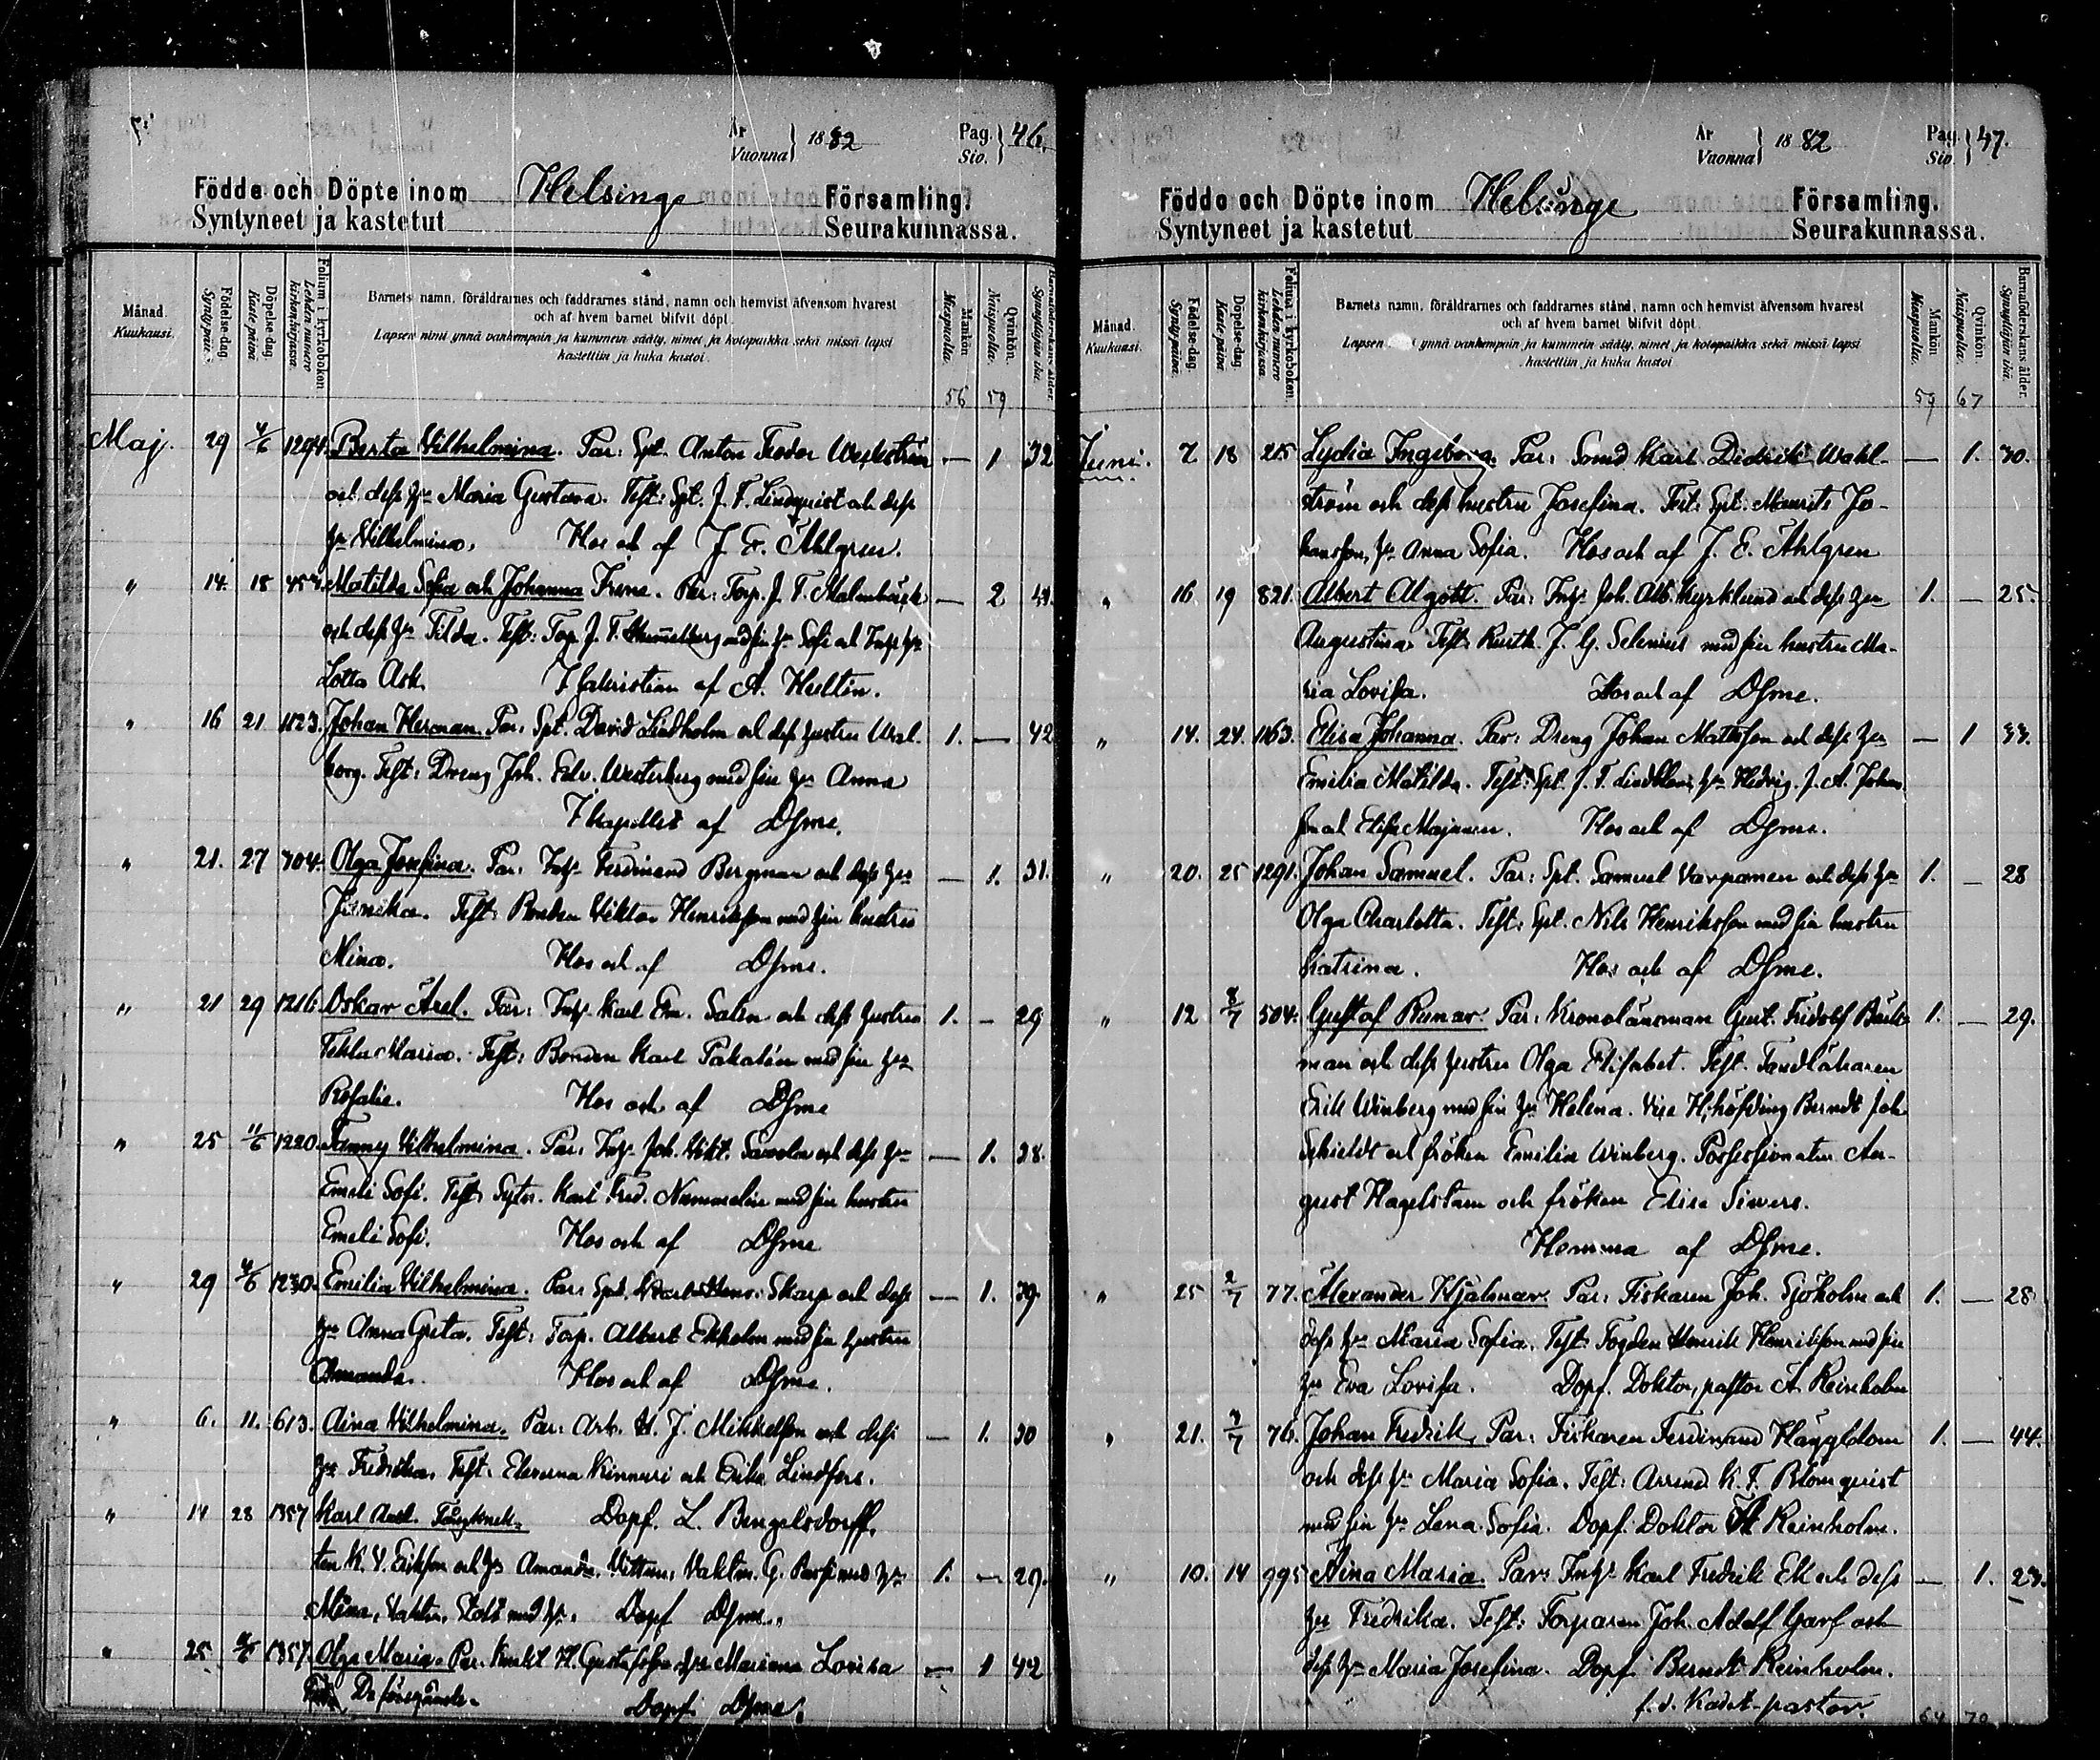 År Vuonna } 1882 Pag. Sio. } 46.
Födde och Döpte inom Helsinge Församling.
Syntyneet ja kastetut Seurakunnassa.
Månad. Kuukausi.
Födelse-dag. Syntypäivä.
Döpelse-dag. Kaste-päivä
Folium i kyrkoboken Lehden numero kirkonkirjassa.
Barnets namn, föräldrarnes och faddrarnes stånd, namn och hemvist äfvensom hvarest
och af hvem barnet blifvit döpt.
Lapsen nimi ynnä vanhempain ja kummein sääty, nimet ja kotopaikka sekä missä lapsi
kastettiin ja kuka kastoi.
Mankön. Miespuolia.
Qvinkön. Naispuolia.
Barnaföderskans ålder. Synnyttäjän ikä.
56 59
Maj. 29 4/6 1294. Berta Vilhelmina. Par: Spt. Anton Feodor Weckström — 1 32
och dess hu Maria Gustava. Test: Spt. J. F. Lindqvist och dess
hu Vilhelmina. Hos och af J. E. Ahlgren.
" 14. 18 Matilda Sofia och Johanna Irene. Par: Torp. J. F. Malmbäck — 2
och dess hu Tilda. Test: Torp. J. F. med sin hu Sofi och Inhs hu
Lotta Ask. I sakristian af A. Hultin.
" 16 21 1123. Johan Herman. Par: Spt. David Lindholm och dess hustru Wal- 1. — 42
borg. Test: Dreng Joh. Edv. Westerberg med sin hu Anna
I kapellet af Dsme.
" 21. 27 704. Olga Josefina. Par: Inhs Ferdinand Bergman och dess hu — 1. 31.
Test: Bonden Viktor Henriksson med sin hustru
Mina. Hos och af Dsme.
" 21 29 1216. Oskar Axel. Par: Inhs Karl Em. Salen och dess hustru 1. — 29
Tekla Maria. Test: Bonden Karl Pakalén med sin hu
Rosalie. Hos och af Dsme
" 25 11/6 1220. Fanny Vilhelmina. Par: Inhs Joh. Vikt. och dess hu — 1. 28.
Emeli Sofi. Test: Sytn. Karl Fred. Nummelin med sin hustru
Emeli Sofi. Hos och af Dsme
" 29 4/6 1230. Emilia Vilhelmina. Par: Spt. Skarp och dess — 1. 39.
hu Anna Greta. Test: Torp. Albert Ekholm med sin hustru
Amanda. Hos och af Dsme.
" 6. 11. 613. Aina Vilhelmina. Par: Arb. H. J. Mikkelson och dess — 1. 30
hu Fredrika. Test: Eleverna Kinnari och Erika Lindfors.
" 14 28 1357 Karl Axel. Fångknek- Döpt. L. Bengelsdorff.
ten K. V. Erikson och hu Amanda. Vittnen: Vaktm. G. med hu 1. — 29.
Mina, Vaktm. Stolt med hu. Döpt Dsme.
" 25 1357. Olga Maria. Par. Knekt H. Gustafsson o hu Mariana Lovisa — 1 42
De föregående. Döpt Dsme.
År Vuonna } 1882 Pag. Sio. } 47.
Födde och Döpte inom Helsinge Församling.
Syntyneet ja kastetut Seurakunnassa.
Månad. Kuukausi.
Födelse-dag. Syntypäivä.
Döpelse-dag. Kaste-päivä
Folium i kyrkoboken. Lehden numero kirkonkirjassa.
Barnets namn, föräldrarnes och faddrarnes stånd, namn och hemvist äfvensom hvarest
och af hvem barnet blifvit döpt.
Lapsen ynnä vanhempain ja kummein sääty, nimet ja kotopaikka sekä missä lapsi
kastettiin ja kuka kastoi
Mankön Miespuolia.
Qvinkön. Naispuolia.
Barnaföderskans ålder. Synnyttäjän ikä.
59 67
Juni. 7 18 215 Lydia Ingeborg. Par: Smed Karl Didrik Wahl- — 1. 30.
ström och dess hustru Josefina. Test: Spt. Maurits Jo-
hansson, hu Anna Sofia. Hos och af J. E. Ahlgren
" 16. 19 821. Albert Algott. Par: Inhs Joh. Alb. Kyrklund och dess hu 1. — 25.
Augustina. Test: Kusk. J. G. Selenius med sin hustru Ma-
ria Lovisa. Hos och af Dsme.
" 14. 24. 1163. Elisa Johanna. Par: Dreng Johan Mattsson och dess hu — 1 33.
Emilia Matilda. Test: Spt. J. F. Lindblom, hu Hedvig. J. A. Johans-
son och Elise Majanen. Hos och af Dsme.
" 20. 25 1291. Johan Samuel. Par: Spt. Samuel Varpanen och dess hu 1. — 28
Olga Charlotta. Test: Spt. Nils Henriksson med sin hustru
Katrina. Hos och af Dsme.
" 12 8/7 504. Gustaf Runar. Par: Kronolänsman Gust. Fridolf Bäck- 1. — 29.
man och dess hustru Olga Elisabet. Test. Tandläkaren
Erik Winberg med sin hu Helena. Vice H:höfding Berndt Joh.
Schildt och fröken Emilia Winberg. Possessionaten Au-
gust Hagelstam och fröken Elise Sivers.
Hemma af Dsme.
" 25 2/7 77. Alexander Hjalmar. Par: Fiskaren Joh. Sjöholm och 1. — 28
dess hu Maria Sofia. Test: Fogden Henrik Henriksson med sin
hu Eva Lovisa. Döpt. Doktor, pastor A. Reinholm
" 21. 7/7 76. Johan Fredrik. Par: Fiskaren Ferdinand Häggblom 1. — 44.
och dess hu Maria Sofia. Test: Arrend. K. F. Blomqvist
med sin hu Lena Sofia. Döpt. Doktor A Reinholm.
" 10. 14 995 Aina Maria. Par: Inhs Karl Fredrik Ek och dess — 1. 23.
hu Fredrika. Test: Torparen Joh. Adolf Garf och
dess hu Maria Josefina. Döpt Berndt Reinholm.
f. d. Kadet-pastor.
64 70